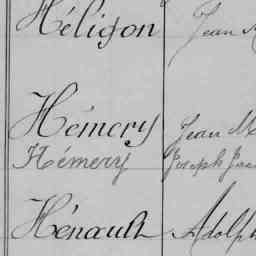 Héligon Jean
Hémery Jean M
Hémery Joseph
Hénault Adolph